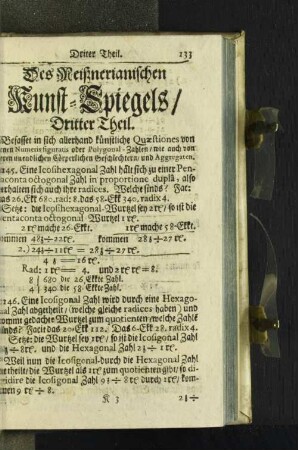 Dritter Theil. 133
Des Meißnerianischen
Kunst-Spiegels/
Dritter Theil.
Befasset in sich allerhand künstliche Quæstiones von
Numeris figuratis oder Polygonal-Zahlen/ wie auch von
ren unendlichen Cörperlichen Geschlechtern/ und Aggregaten.
145. Eine Icosihexagonal Zahl hält sich zu einer Pen-
taconta octogonal Zahl in proportione dupla, also
verhalten sich auch ihre radices. Welche sinds? Fac:
as 26. Ekt 680. rad: 8. das 58-Ekt 340. radix 4.
Setzt: die Icosihexagonal-Wurtzel sey 2re/ so ist die
Pentaconta octogonal-Wurtzel 1 re.
2 re macht 26-Ekkt. 1 re macht 58-Ekkt.
kommen 48z÷22re. kommen 28z÷27 re.
2.) 24z÷11re = 28z÷27 re.
4 z = 16 re.
Rad: 1 re = 4. und 2 re re = 8.
8 680 die 26 Ekkte Zahl.
4 340 die 58-Ekkte Zahl.
146. Eine Icosigonal Zahl wird durch eine Hexago-
nal Zahl abgetheilt/ (welche gleiche radices haben) und
komme gedachte Wurtzel zum quotienten/ welche Zahlē
sinds? Facit das 20-Ekk 112. Das 6-Ekk 28. radix 4.
Setzt: die Wurtzel sey 1re/ so ist die Icosigonal Zahl
÷ 8re. und die Hexagonal Zahl 2z÷ 1 re.
Weil nun die Icosigonal-durch die Hexagonal Zahl
theilt/ die Wurtzel als 1re zum quotienten gibt/ so di-
vidire die Icosigonal Zahl 9z÷8re durch 1re/ kom-
men 9 re÷ 8.
K 3 2z÷